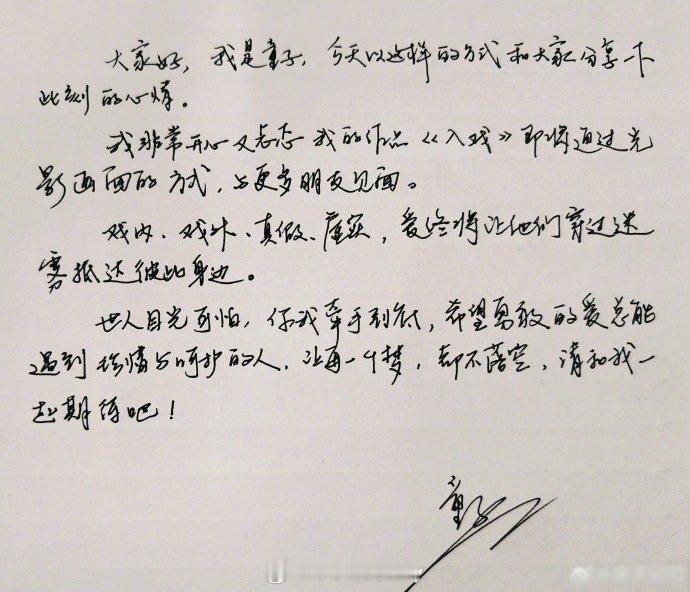 大家好，我是童子，今天以这样的方式和大家分享一下
此刻的心情。
我非常开心又忐忑 我的作品《入戏》即将通过光
影画面的方式，与更多朋友见面。
戏内、戏外、真假、虚实，爱终将让他们穿过迷
雾抵达彼此身边。
世人目光可怕，你我牵手到底，希望勇敢的爱总能
遇到珍惜与呵护的人，让每一个梦，都不落空，请和我一
起期待吧！
童子